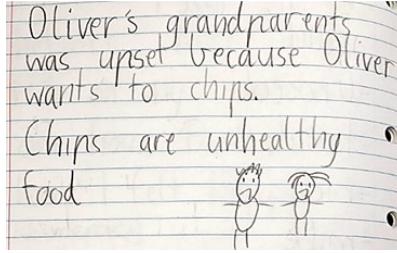 Oliver's grandparents
was upset because Oliver
wants to chips.
Chips are unhealthy
food